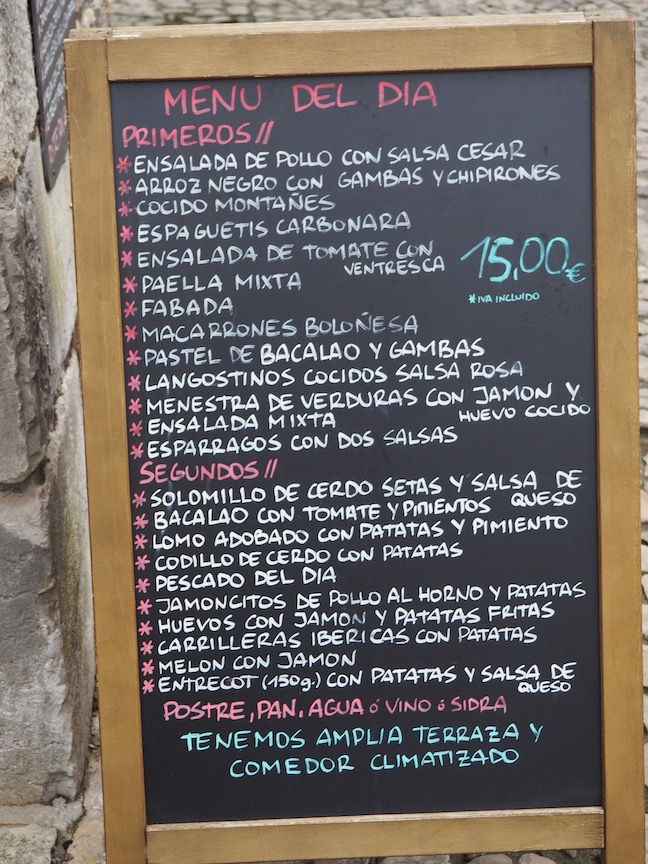 MENU DEL DIA
PRIMEROS//
* ENSALADA DE POLLO CON SALSA CESAR
* ARROZ NEGRO CON GAMBAS Y CHIPIRONES
* COCIDO MONTAÑES
* ESPAGUETIS CARBONARA
* ENSALADA DE TOMATE CON
VENTRESCA
15,00€
*IVA INCLUIDO
* PAELLA MIXTA
* FABADA
* MACARRONES BOLOÑESA
* PASTEL DE BACALAO Y GAMBAS
* LANGOSTINOS COCIDOS SALSA ROSA
* MENESTRA DE VERDURAS CON JAMON Y
HUEVO COCIDO
* ENSALADA MIXTA
* ESPARRAGOS CON DOS SALSAS
SEGUNDOS//
* SOLOMILLO DE CERDO SETAS Y SALSA DE
QUESO
* BACALAO CON TOMATE Y PIMIENTOS
* LOMO ADOBADO CON PATATAS Y PIMIENTO
* CODILLO DE CERDO CON PATATAS
* PESCADO DEL DIA
* JAMONCITOS DE POLLO AL HORNO Y PATATAS
* HUEVOS CON JAMON Y PATATAS FRITAS
* CARRILLERAS IBERICAS CON PATATAS
* MELON CON JAMON
* ENTRECOT (150g.) CON PATATAS Y SALSA DE
QUESO
POSTRE, PAN, AGUA ó VINO ó SIDRA
TENEMOS AMPLIA TERRAZA Y
COMEDOR CLIMATIZADO